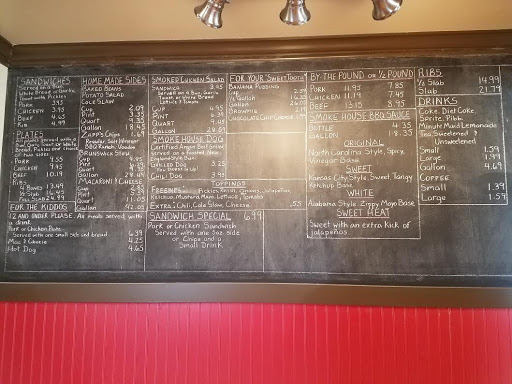 SANDWICHES
Served on a Bun,
White Bread or Garlic
Toast with Pickles
PORK 3.95
CHICKEN 3.95
BEEF 4.65
Rib 4.99
PLATES
Pork 9.55
Chicken 9.45
Beef 10.19
Ribs
4 Bones 13.49
1/2 Slab 16.95
Full Slab 24.99
FOR THE KIDDOS
12 AND UNDER PLEASE. All meals served with
a drink.
Pork or Chicken Plate
Served with one small side and bread 6.39
Mac & Cheese 4.25
Hot Dog 4.65
HOME MADE SIDES
BAKED BEANS
POTATO SALAD
COLE SLAW
Cup 2.09
Pint 3.35
Quart
Gallon 18.45
ZAPP'S Chips 1.69
Regular, Salt Vinegar
BBQ, Ranch, Voodoo
BRUNSWICK STEW
Cup
Pint
Quart
Gallon
MACARONI & CHEESE
Cup
Pint
Quart 11.05
Gallon 42.05
SMOKED CHICKEN SALAD
SANDWICH 3.95
Served on a Bun, Garlic
Toast or White Bread
Lettuce & Tomato
CUP 4.95
PINT 6.39
QUART
GALLON
SMOKE HOUSE DOG
Certified Angus Beef Grilled
served on a toasted New
England Style Bun
Grilled Dog 3.25
You Dress It Up!
Chili Dog 3.95
TOPPINGS
FREEBIES: Pickles, Relish, Onions, Jalapeños,
Ketchup, Mustard, Mayo, Lettuce, Tomato
Extras: Chili, Cole Slaw, Cheese .55
SANDWICH SPECIAL 6.99
Pork or Chicken Sandwich
Served with one 5oz side
or Chips and a
Small Drink
FOR YOUR "SWEET TOOTH"
BANANA PUDDING
CUP 2.89
1/2 Gallon
Gallon
BROWNIE 2.19
CHOCOLATE CHIP COOKIE
BY THE POUND OR 1/2 POUND
PORK 11.95 7.85
CHICKEN 11.19 7.45
BEEF 13.15 8.95
SMOKE HOUSE BBQ SAUCE
BOTTLE 4.35
GALLON 18.35
ORIGINAL
North Carolina Style, Spicy,
Vinegar Base
SWEET
Kansas City Style, Sweet, Tangy
Ketchup Base
WHITE
Alabama Style, Zippy Mayo Base
SWEET HEAT
Sweet with an extra Kick of
jalapeños.
RIBS
1/2 Slab 14.99
Slab 21.79
DRINKS
Coke, Diet Coke
Sprite, Pibb,
Minute Maid Lemonade
Tea: Sweetened &
Unsweetened
Small 1.59
Large 1.99
Gallon 4.65
COFFEE
Small 1.39
Large 1.59